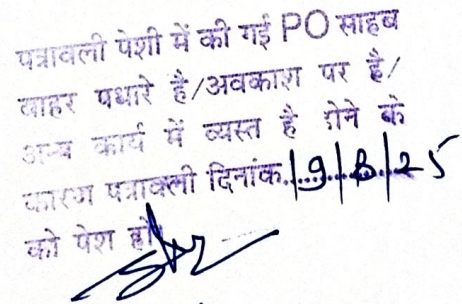 पत्रावली पेशी में की गई PO साहब
बाहर पधारे है/अवकाश पर है/
अन्य कार्य में व्यस्त है होने के
कारण पत्रावली दिनांक.19/8/25
को पेश हो।